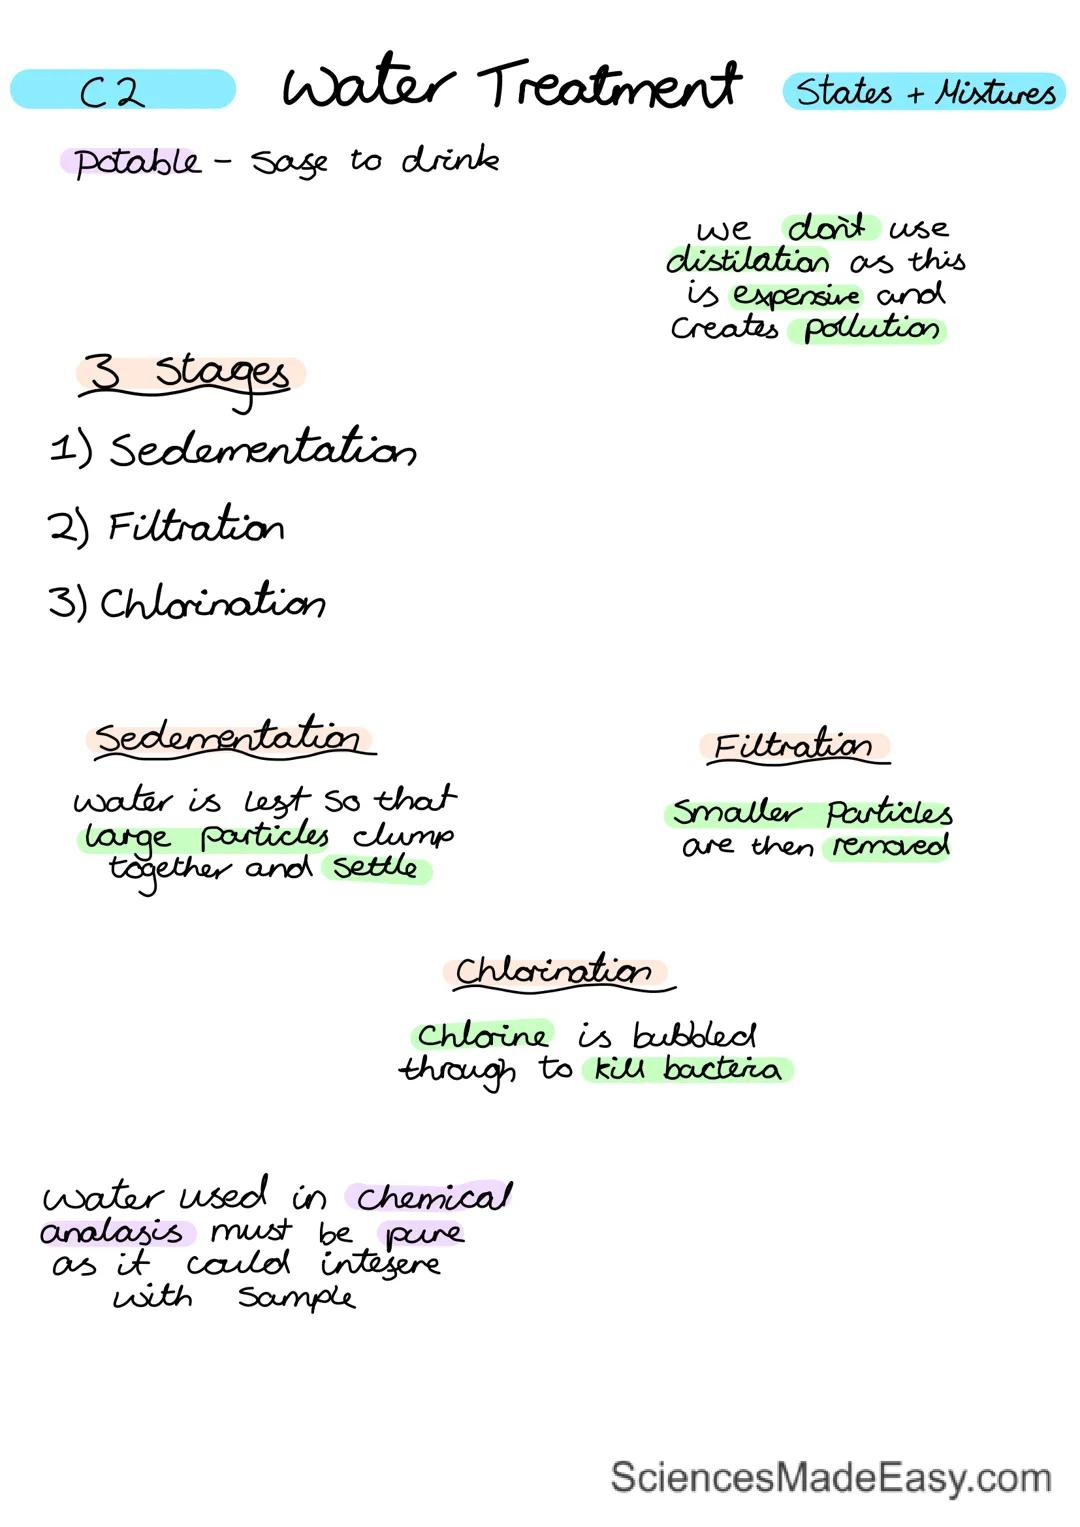 C2
Water Treatment
States + Mixtures
Potable - safe to drink
we don't use
distilation as this
is expensive and
creates pollution
3 Stages
1) Sedementation
2) Filtration
3) Chlorination
Sedementation
water is left so that
large particles clump
together and settle
Filtration
Smaller Particles
are then removed
Chlorination
Chlorine is bubbled
through to kill bacteria
water used in chemical
analasis must be pure
as it could intefere
with sample
SciencesMadeEasy.com